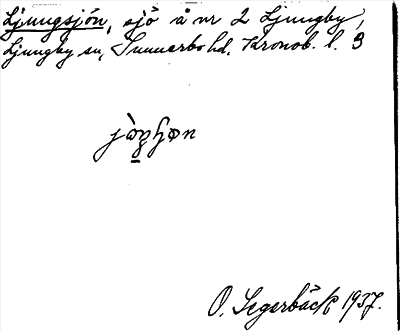 Ljungsjön, sjö å nr 2 Ljungby,
Ljungby sn, Sunnerbo hd, Kronob. l. 3
O. Segerbäck 1937.